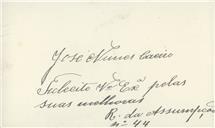 José Nunes Caeiro
Felicito V. Exª pelas
suas melhoras
R. da Assumpção
nº 44